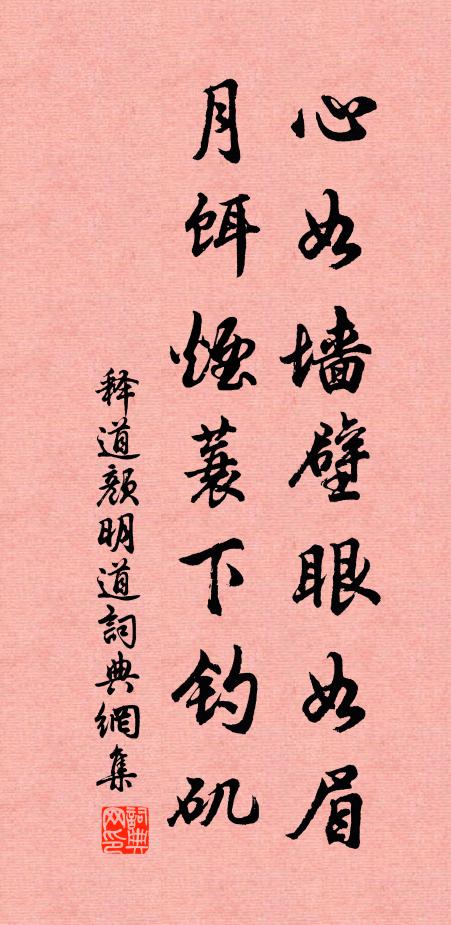 心如墙壁眼如眉
月饵煙蓑下钓矶
释道颜明道詞典網集
詞典网印